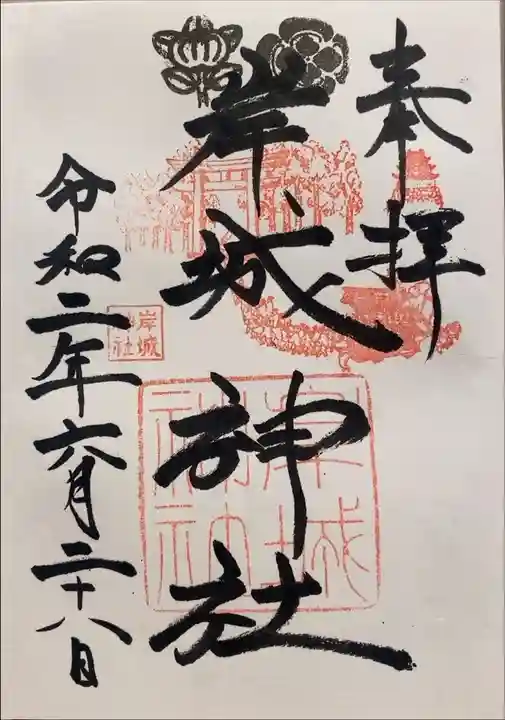 奉拝
岸城神社
岸城神社
岸城神社
令和二年六月二十八日